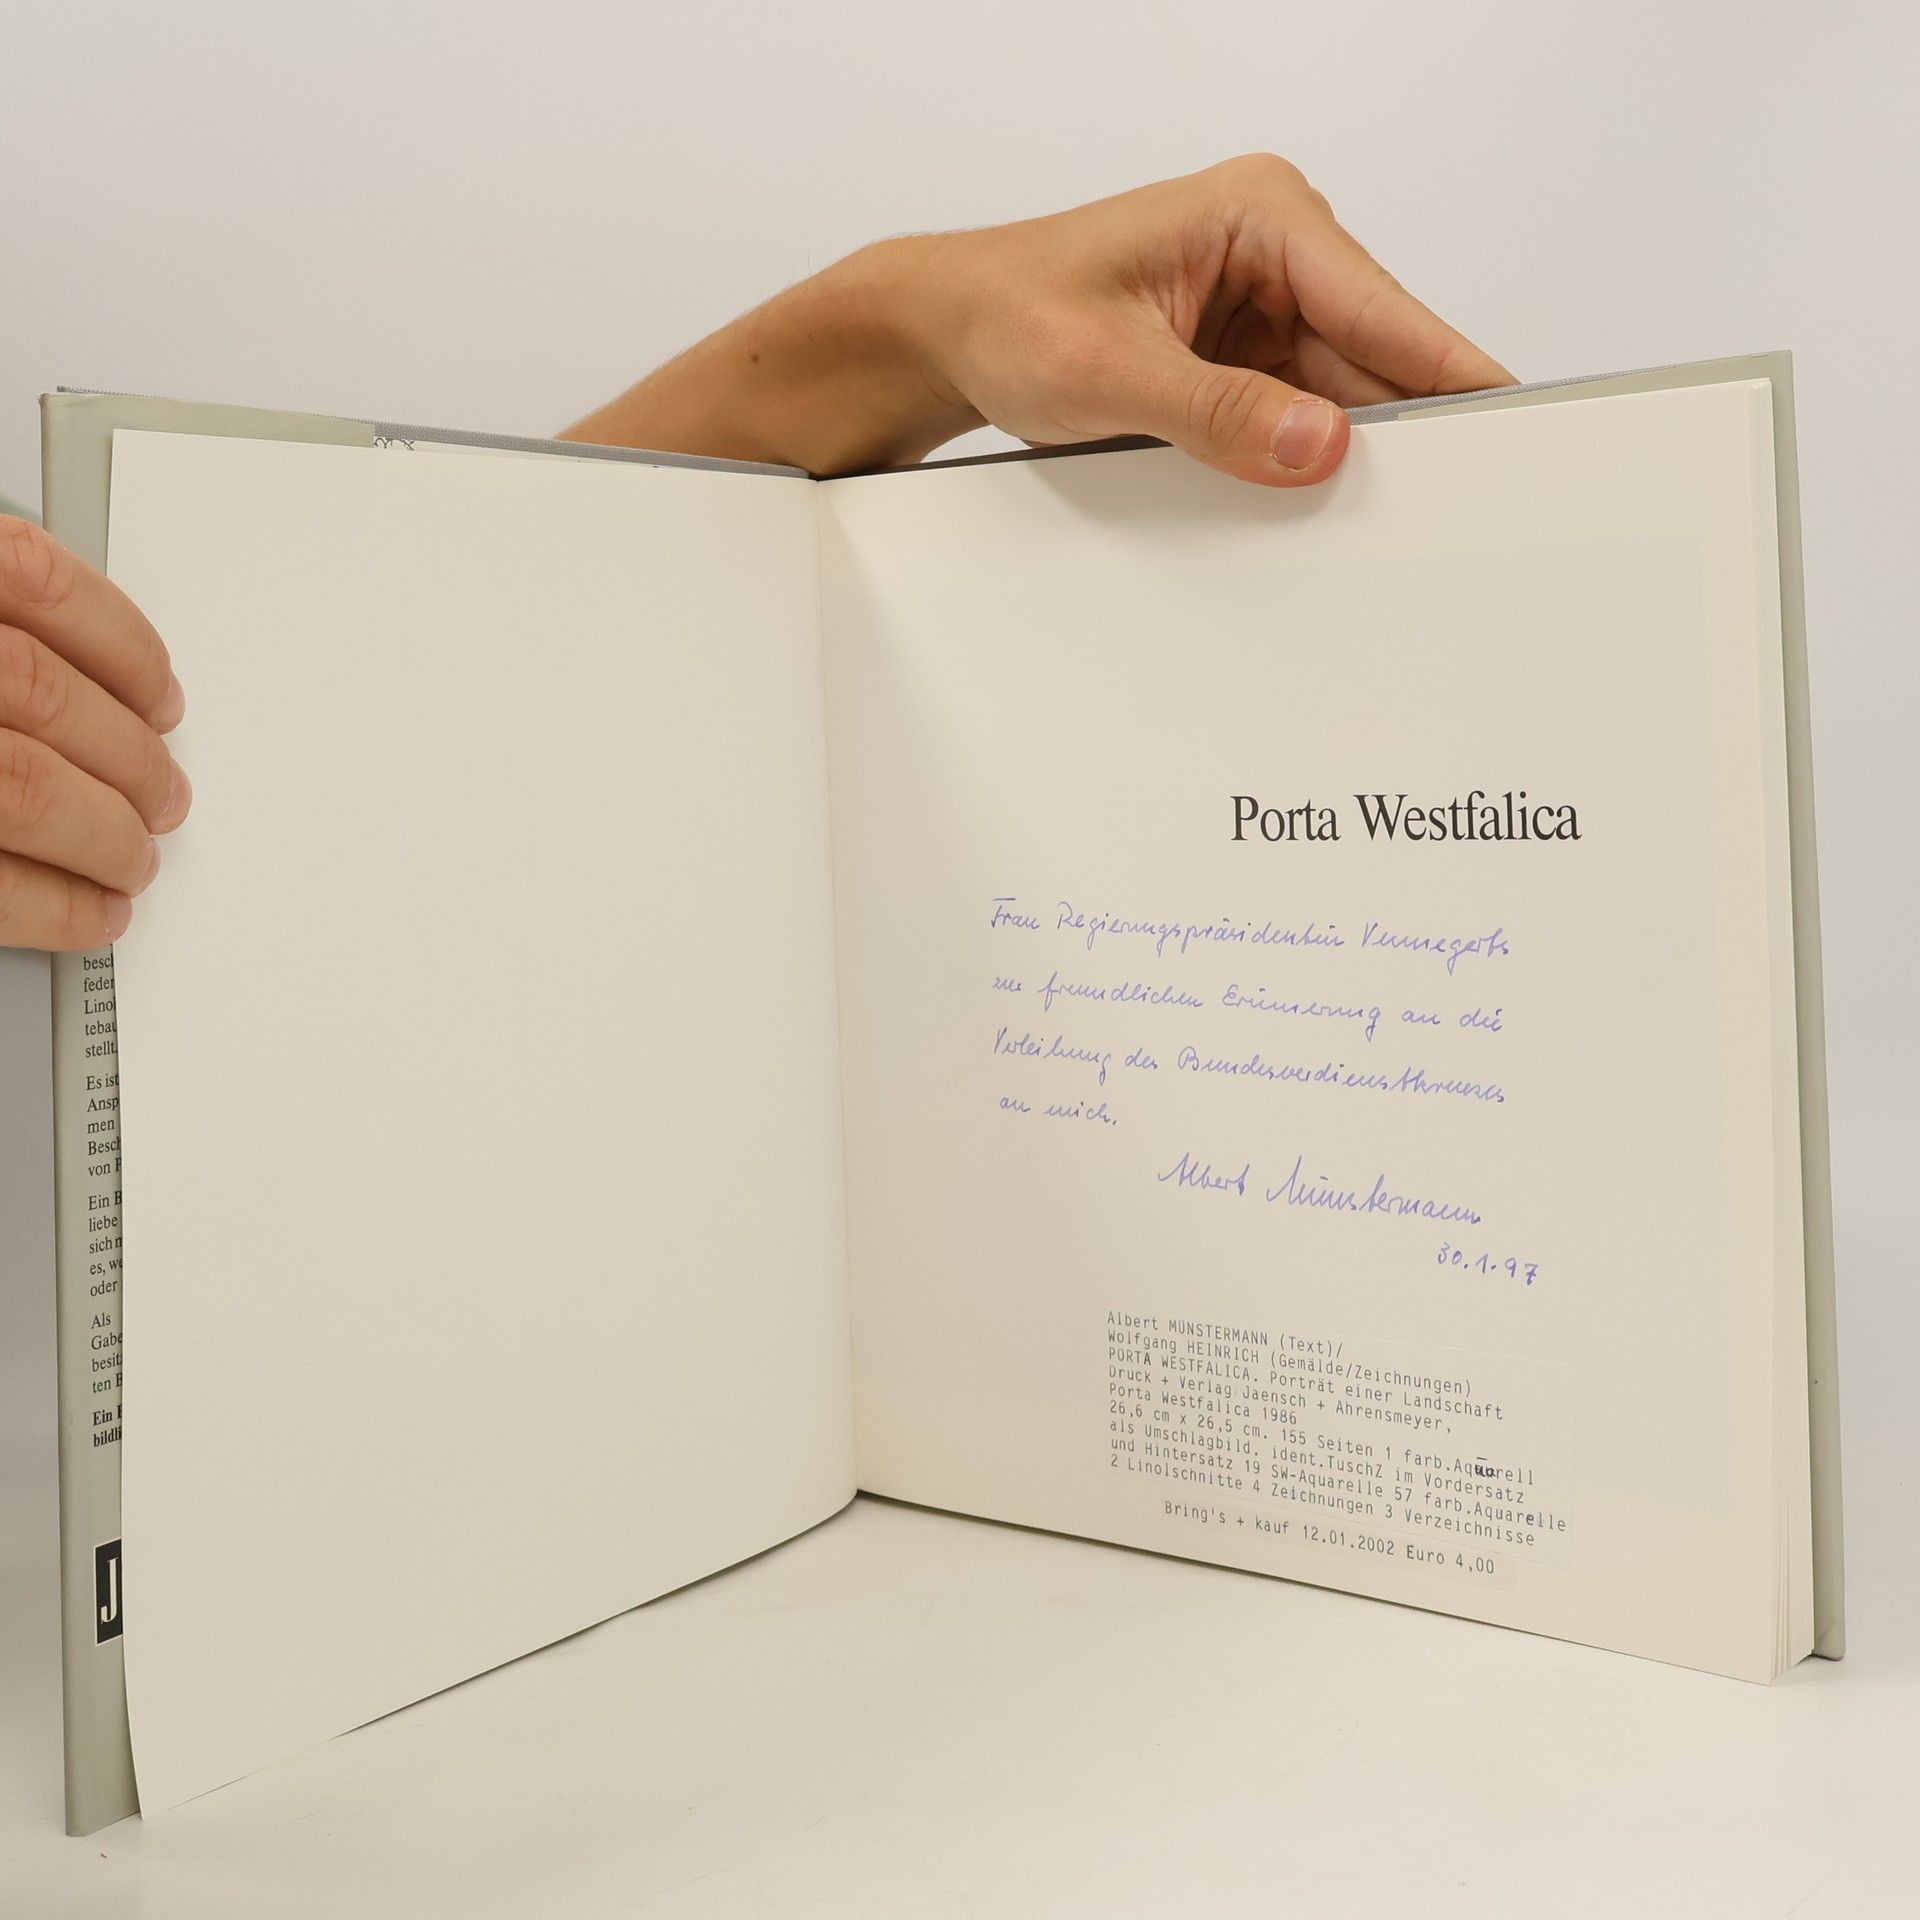 besch
feder
Linol
tebau
stellt.
Es ist
Ansp
men
Besch
von P
Ein B
liebe
sich m
es, we
oder
Als
Gabe
besitz
ten B
Ein B
bildli
J
Porta Westfalica
Frau Regierungspräsidentin Vennegerts
zur freundlichen Erinnerung an die
Verleihung des Bundesverdienstkreuzes
an mich.
Albert Münstermann
30.1.97
Albert MÜNSTERMANN (Text)/
Wolfgang HEINRICH (Gemälde/Zeichnungen)
PORTA WESTFALICA. Porträt einer Landschaft
Druck + Verlag Jaensch + Ahrensmeyer,
Porta Westfalica 1986
26,6 cm x 26,5 cm. 155 Seiten 1 farb.Aquarell
als Umschlagbild. ident.TuschZ im Vordersatz
und Hintersatz 19 SW-Aquarelle 57 farb.Aquarelle
2 Linolschnitte 4 Zeichnungen 3 Verzeichnisse
Bring's + kauf 12.01.2002 Euro 4,00